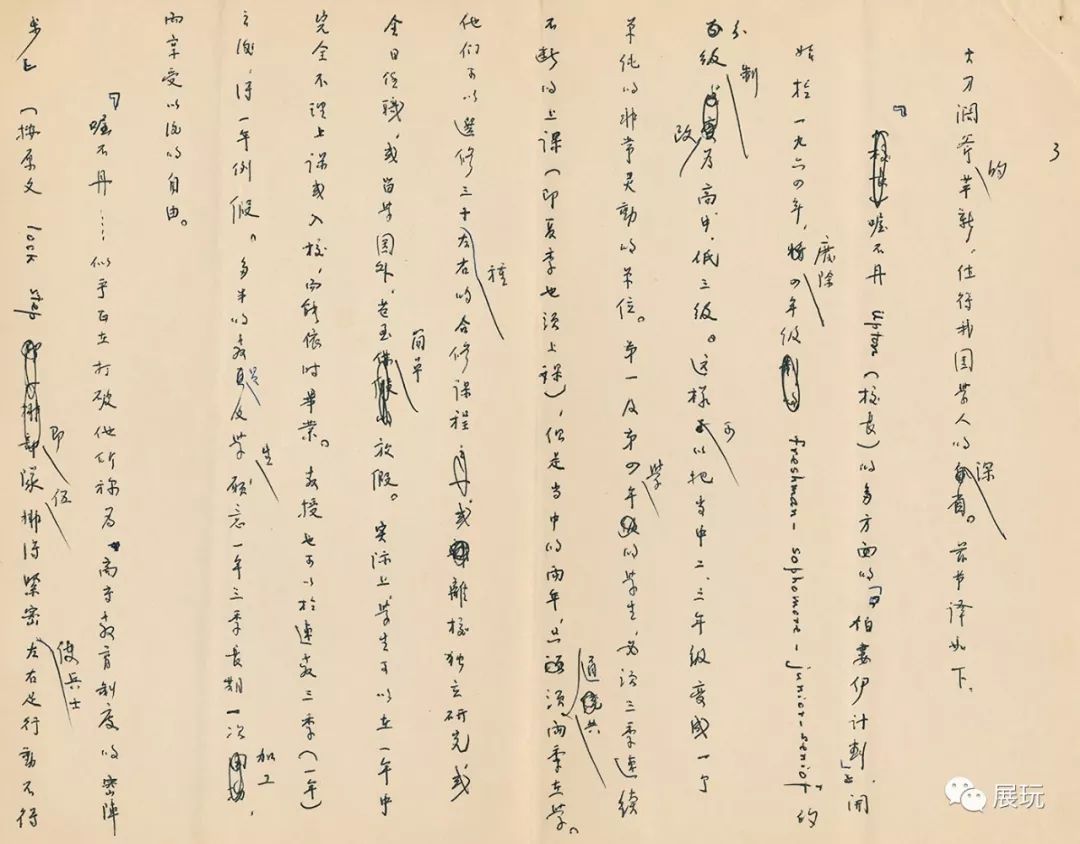 3
大刀阔斧的革新，值得我国学人的深省。兹节译如下。
『喔不丹 Upton（校长）的多方面的「伯娄伊计划」，开
始於一九六四年，废除四年级 freshman-sophomore-junior-senior 的
分级制，改为高中低三级。这样可以把当中二、三年级变成一个
单纯的非常灵动的单位。第一及第四年的学生，必须三季连续
不断的上课（即夏季也须上课），但是当中的两年，只须通共两季在学。
他们可以选修三十种左右的合修课程，或離校独立研究或
全日任职，或留学国外，甚至简单放假。实际上学生可以在一年中
完全不理上课或入校，而能依时毕业。教授也可以於连教三季（一年）
之後，得一年例假。多半的教员及学生願意一年三季長期一次加工，
而享受以後的自由。
『喔不丹……似乎旨在打破他所称为"高等教育制度的密阵
步上（按原文 lock step 即队伍挪得紧密使兵士左右足行动不得
展玩